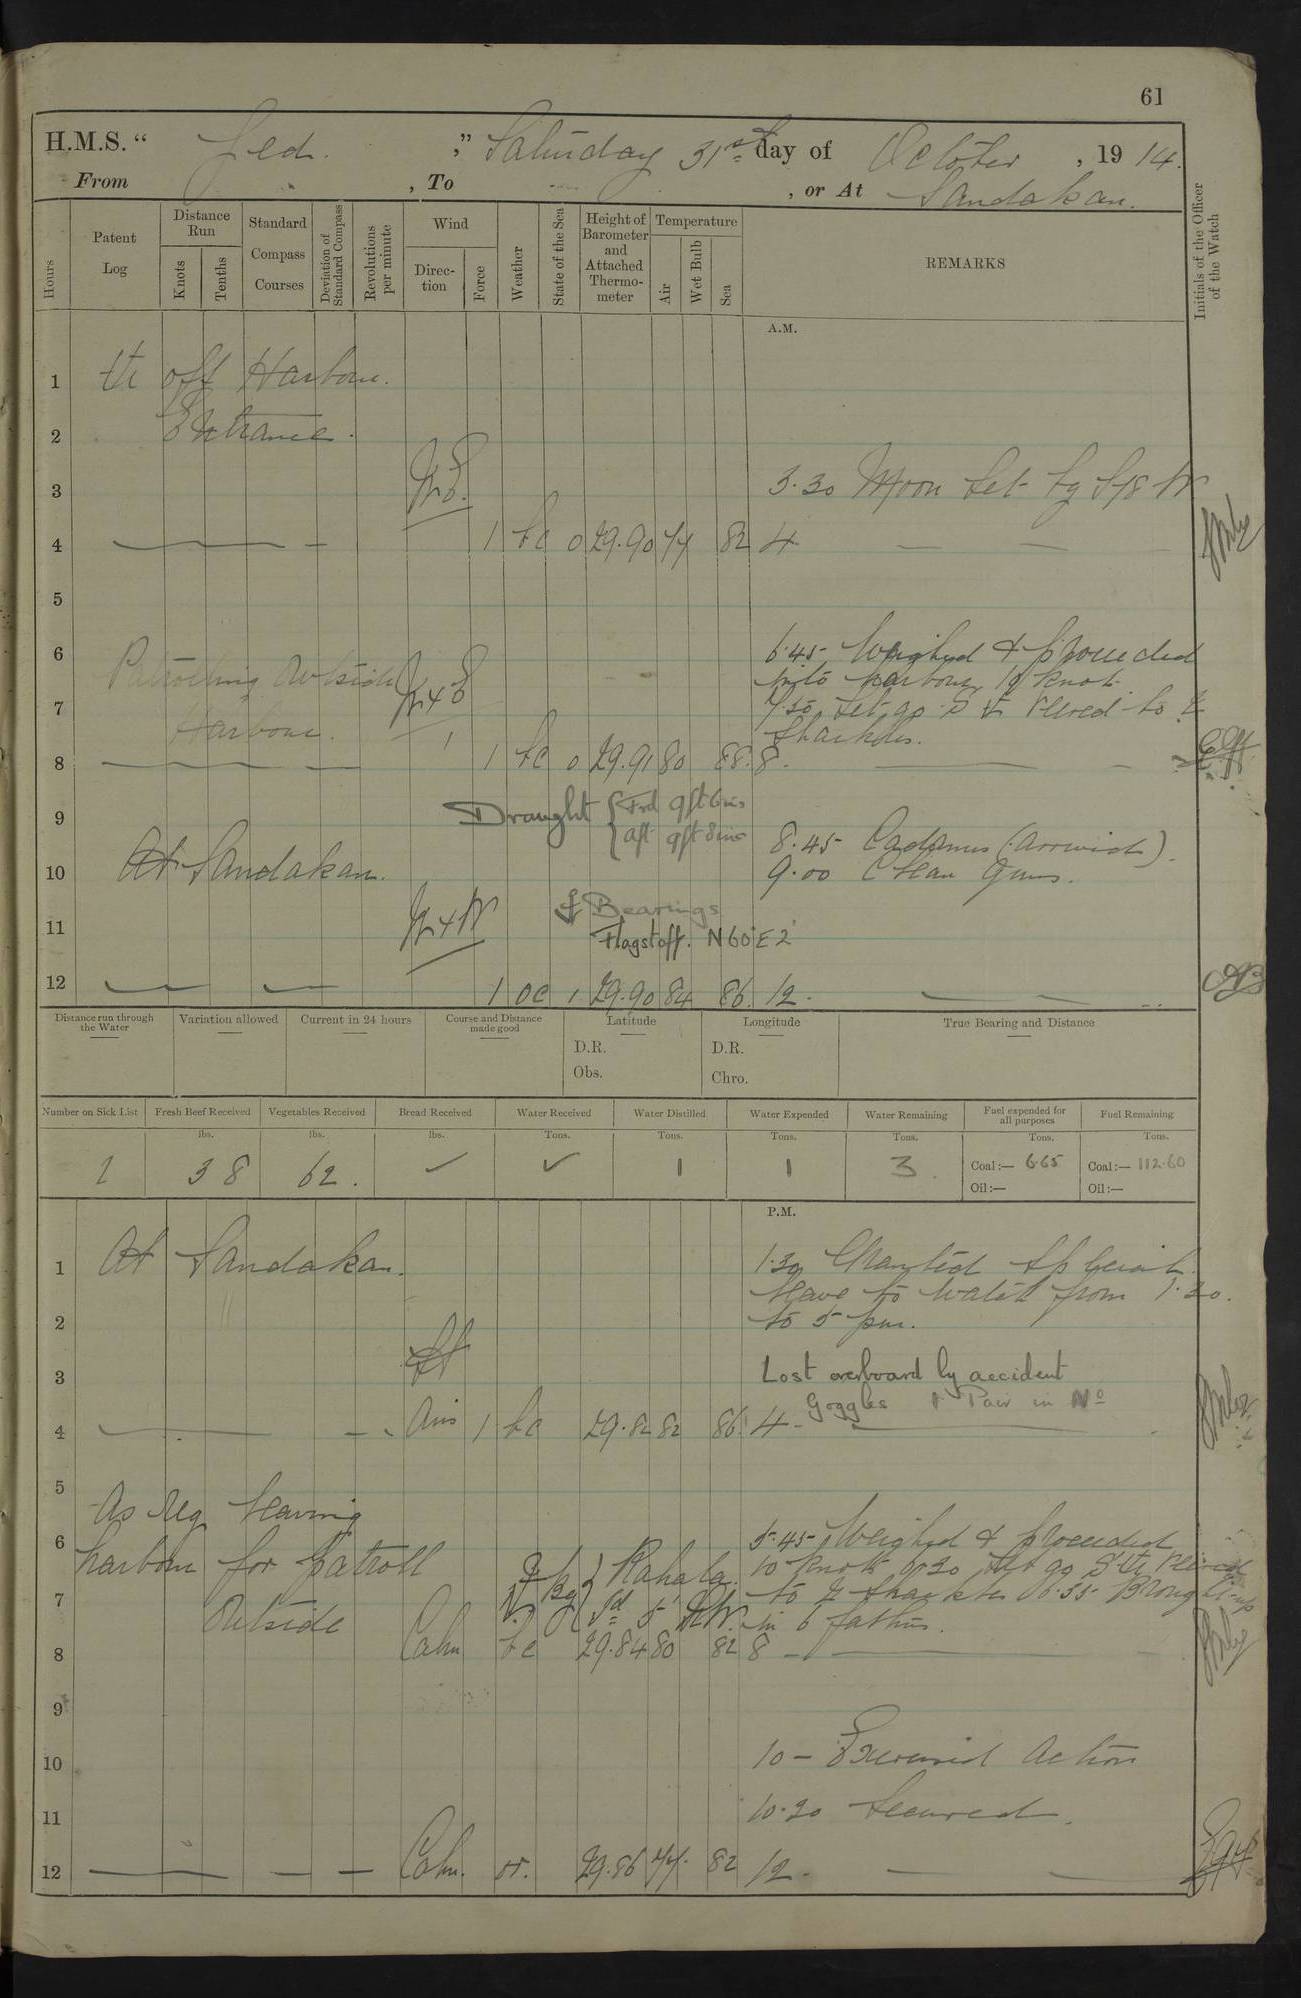 61
H.M.S. “ Jed. ,” Saturday 31st day of October , 19 14.
From , To , or At Sandakan.
Hours
Patent Log
Distance Run
Knots
Tenths
Standard Compass Courses
Deviation of Standard Compass
Revolutions per minute
Wind
Direction
Force
Weather
State of the Sea
Height of Barometer and Attached Thermometer
Temperature
Air
Wet Bulb
Sea
REMARKS
Initials of the Officer of the Watch
A.M.
1 off Harbour.
2 Entrance.
3 3.30 Moon Set
4 1 bc 0 29.90 82 4
5
6 6.45 Weighed & proceeded
Patrolling Outside into harbour 10 knots
7 7.30 Let go veered to
Harbour. Shackles.
8 1 bc 0 29.91 80 88. 8.
9 Draught { Ford 9ft 6ins
aft 9ft 8ins
8.45
10 At Sandakan. 9.00 Clean Guns.
Bearings
11 Flagstaff. N60°E 2
12 1 oc 1 29.90 84 86. 12.
Distance run through the Water
Variation allowed
Current in 24 hours
Course and Distance made good
Latitude
Longitude
True Bearing and Distance
D.R. D.R.
Obs. Chro.
Number on Sick List
Fresh Beef Received
Vegetables Received
Bread Received
Water Received
Water Distilled
Water Expended
Water Remaining
Fuel expended for all purposes
Fuel Remaining
lbs. lbs. lbs. Tons. Tons. Tons. Tons. Tons. Tons.
38 62. ✓ ✓ 1 1 3 Coal:— 6.65 Coal:— 112.60
Oil:— Oil:—
P.M.
1 At Sandakan. 1.30 Granted special
leave to watch from 1.30.
2 to 5 pm.
3 Lost overboard by accident
Goggles 1 Pair in No
4 Airs 1 bc 29.82 82 86 4
5
As req leaving
6 5.45 Weighed & proceeded
harbour for patroll 10 knots 6.20 let go
7 to shackles 6.35 Brought up
Outside in 6 fathms.
8 Calm bc 29.84 80 82 8
9
10 10 - Exercised Action
11 10.20 Secured.
12 Calm. 29.86 82 12.